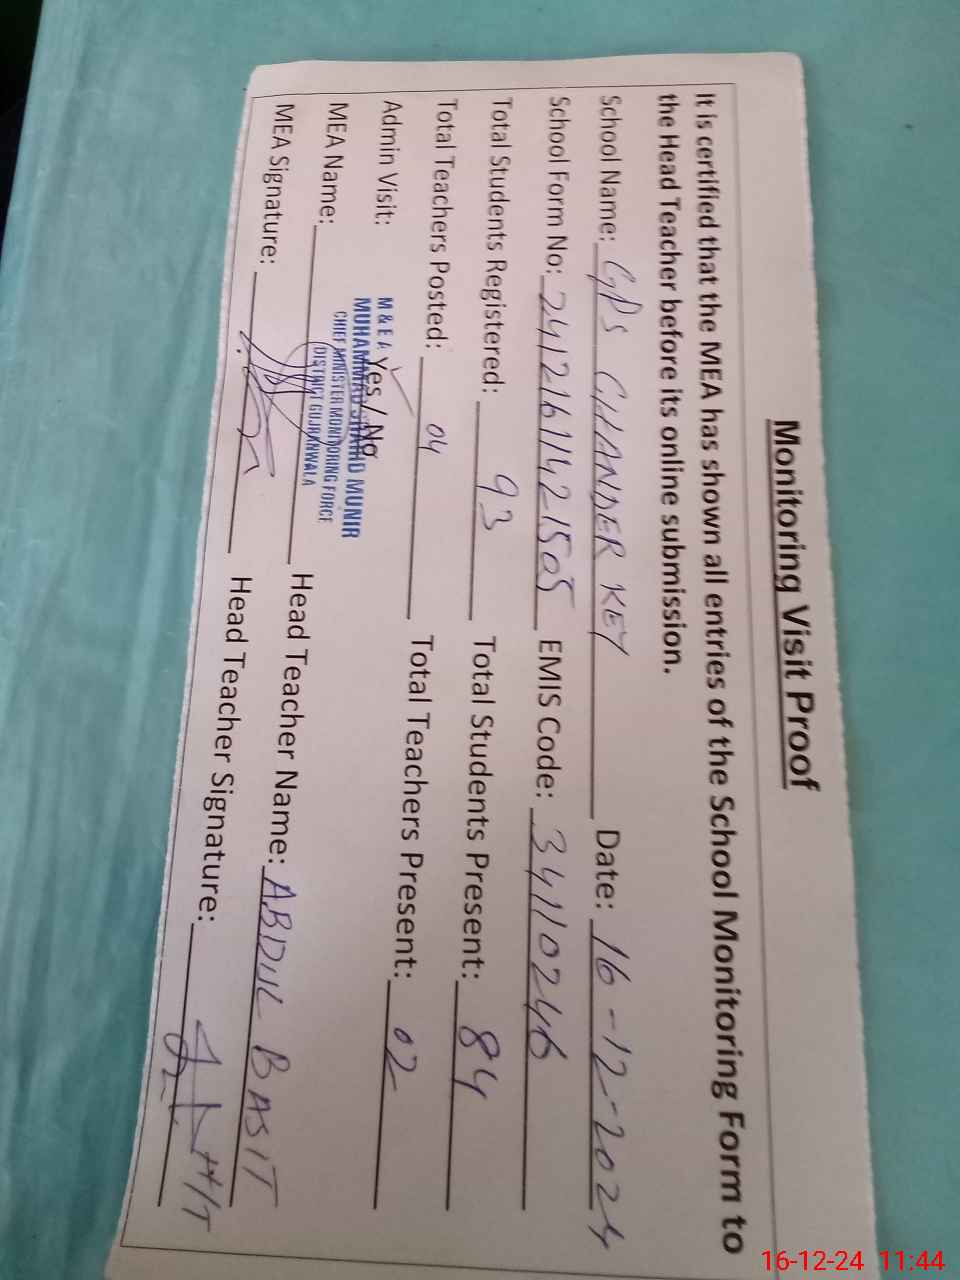 Monitoring Visit Proof
It is certified that the MEA has shown all entries of the School Monitoring Form to
the Head Teacher before its online submission.
School Name: GPS CHANDER KEY Date: 16-12-2024
School Form No: 24121611421505 EMIS Code: 34110246
Total Students Registered: 93 Total Students Present: 84
Total Teachers Posted: 04 Total Teachers Present: 02
Admin Visit: Yes / No
M & E A
MUHAMMAD SHAHID MUNIR
CHIEF MINISTER MONITORING FORCE
DISTRICT GUJRANWALA
MEA Name: Head Teacher Name: ABDUL BASIT
MEA Signature: Head Teacher Signature:
16-12-24 11:44